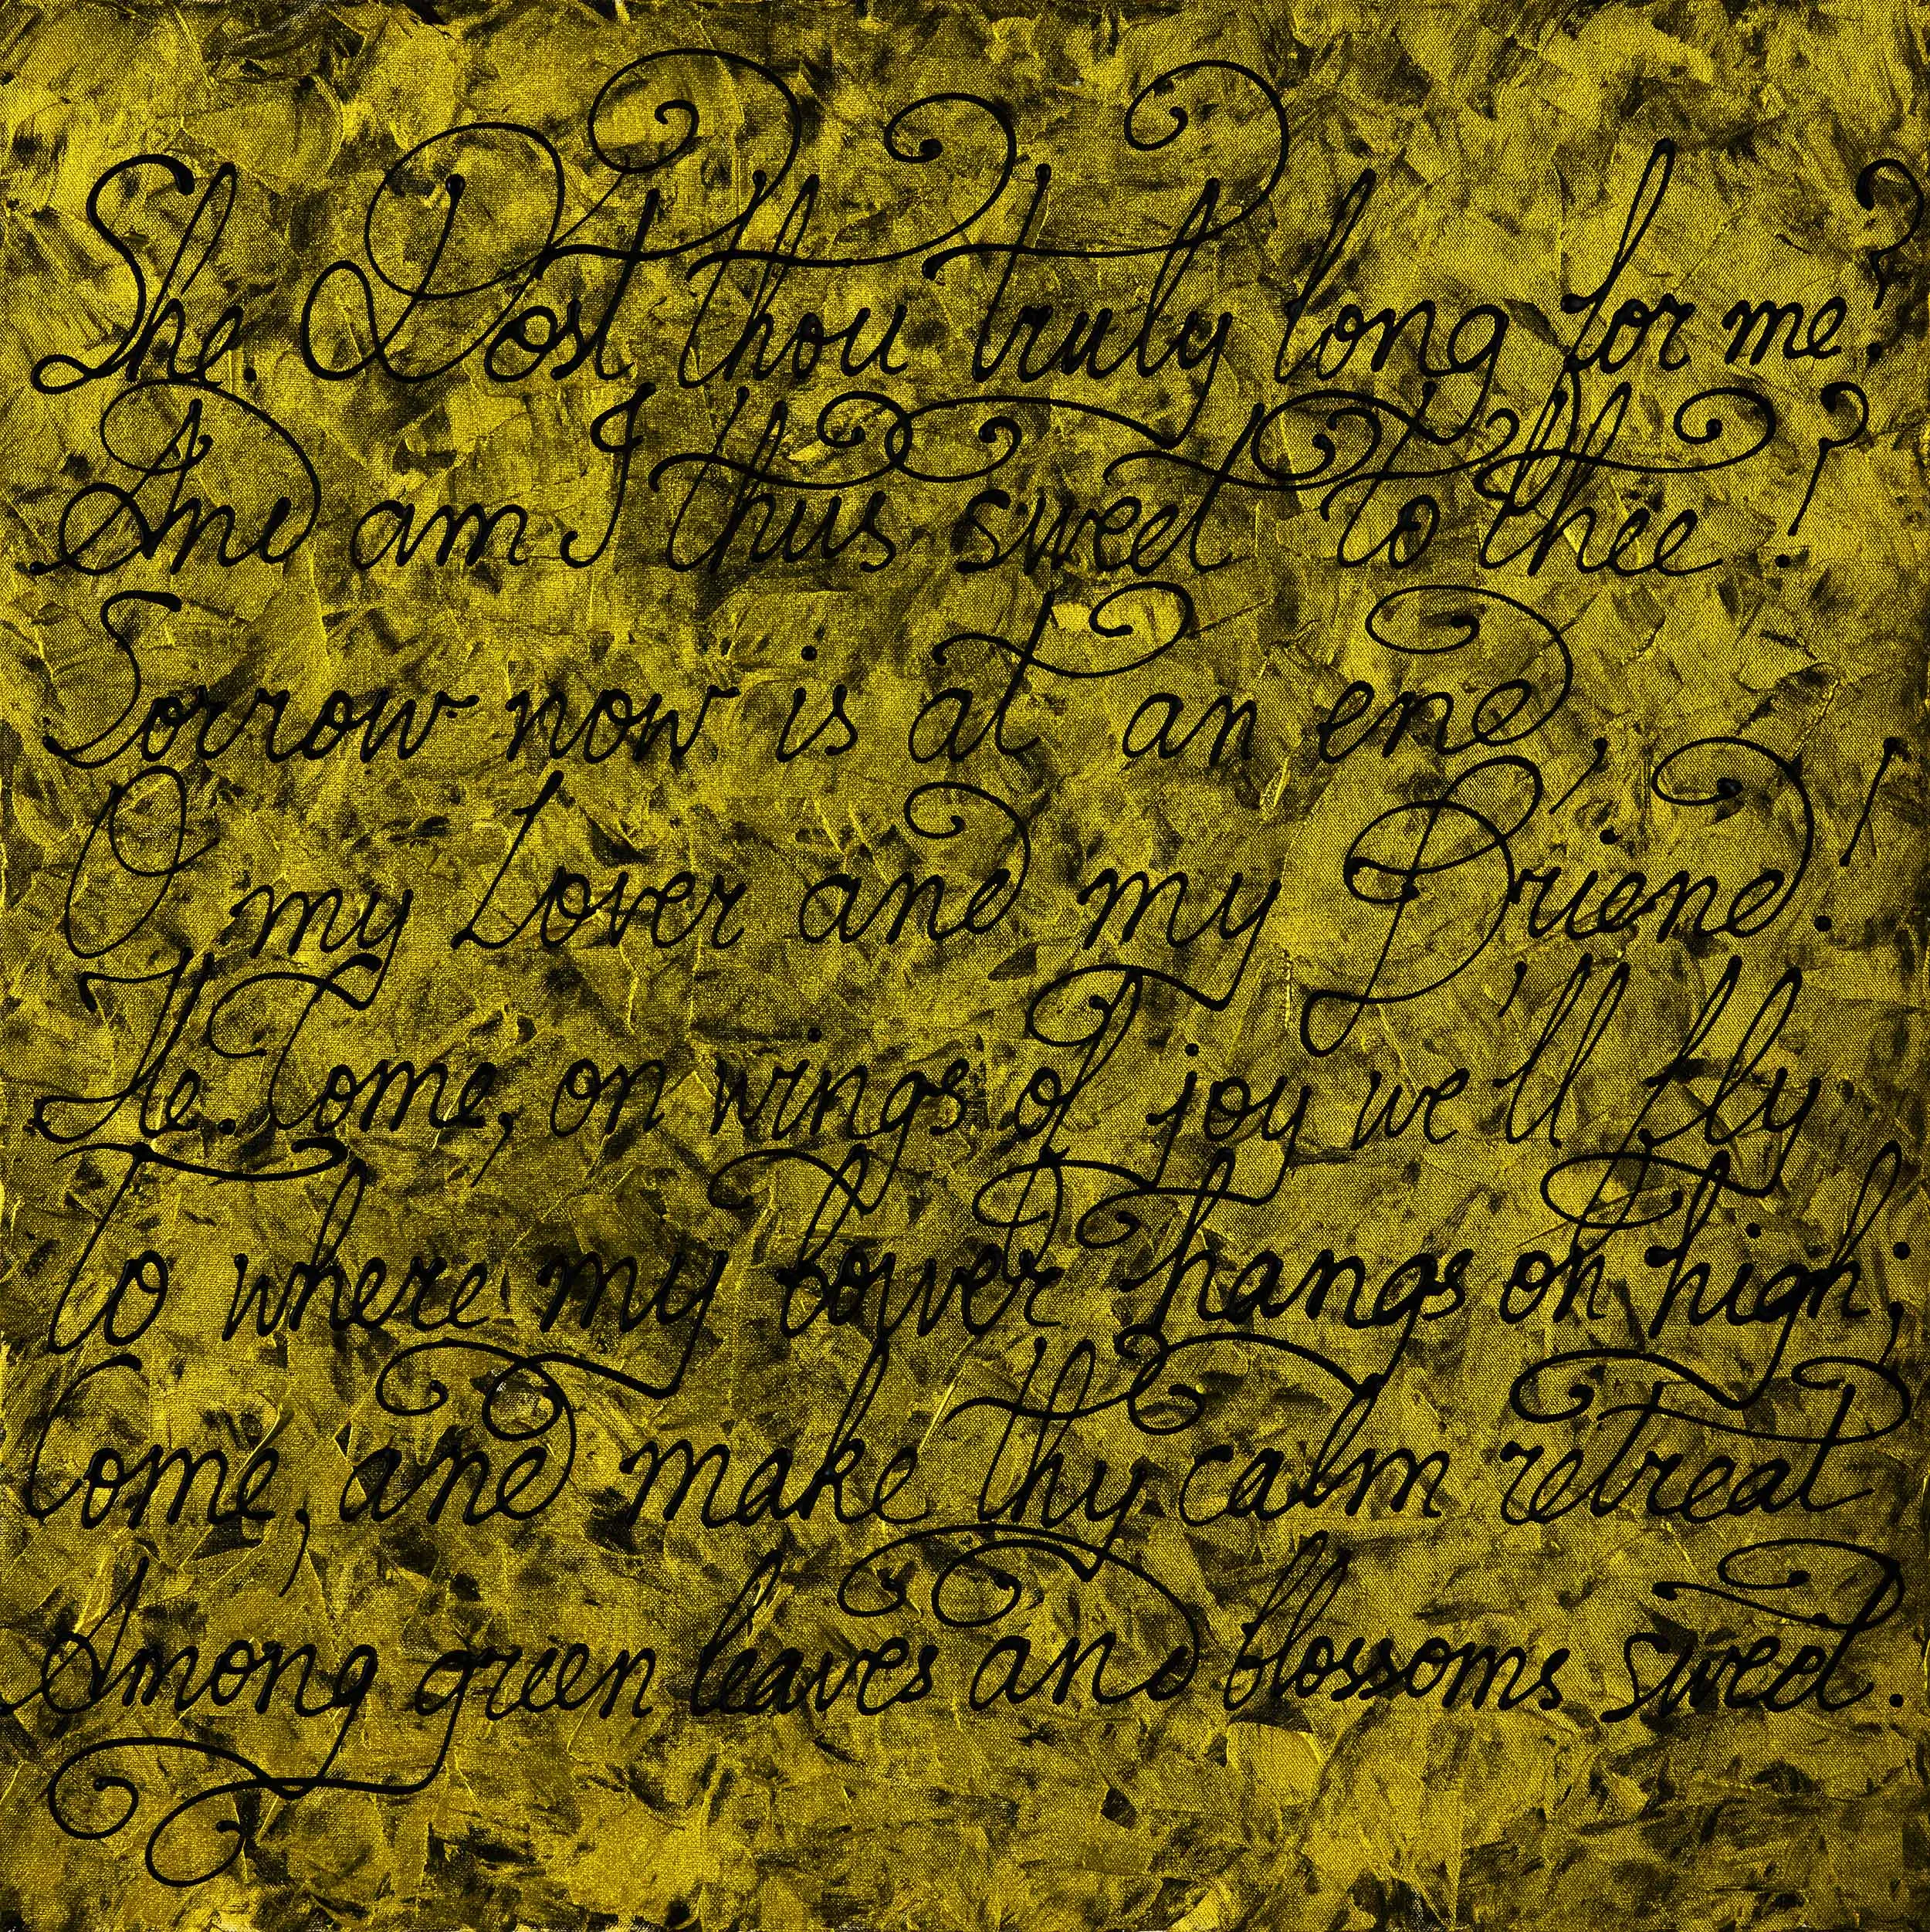 She. Dost thou truly long for me?
And am I thus sweet to thee?
Sorrow now is at an end,
O my Lover and my Friend!
He. Come, on wings of joy we'll fly
To where my bower hangs on high;
Come, and make thy calm retreat
Among green leaves and blossoms sweet.